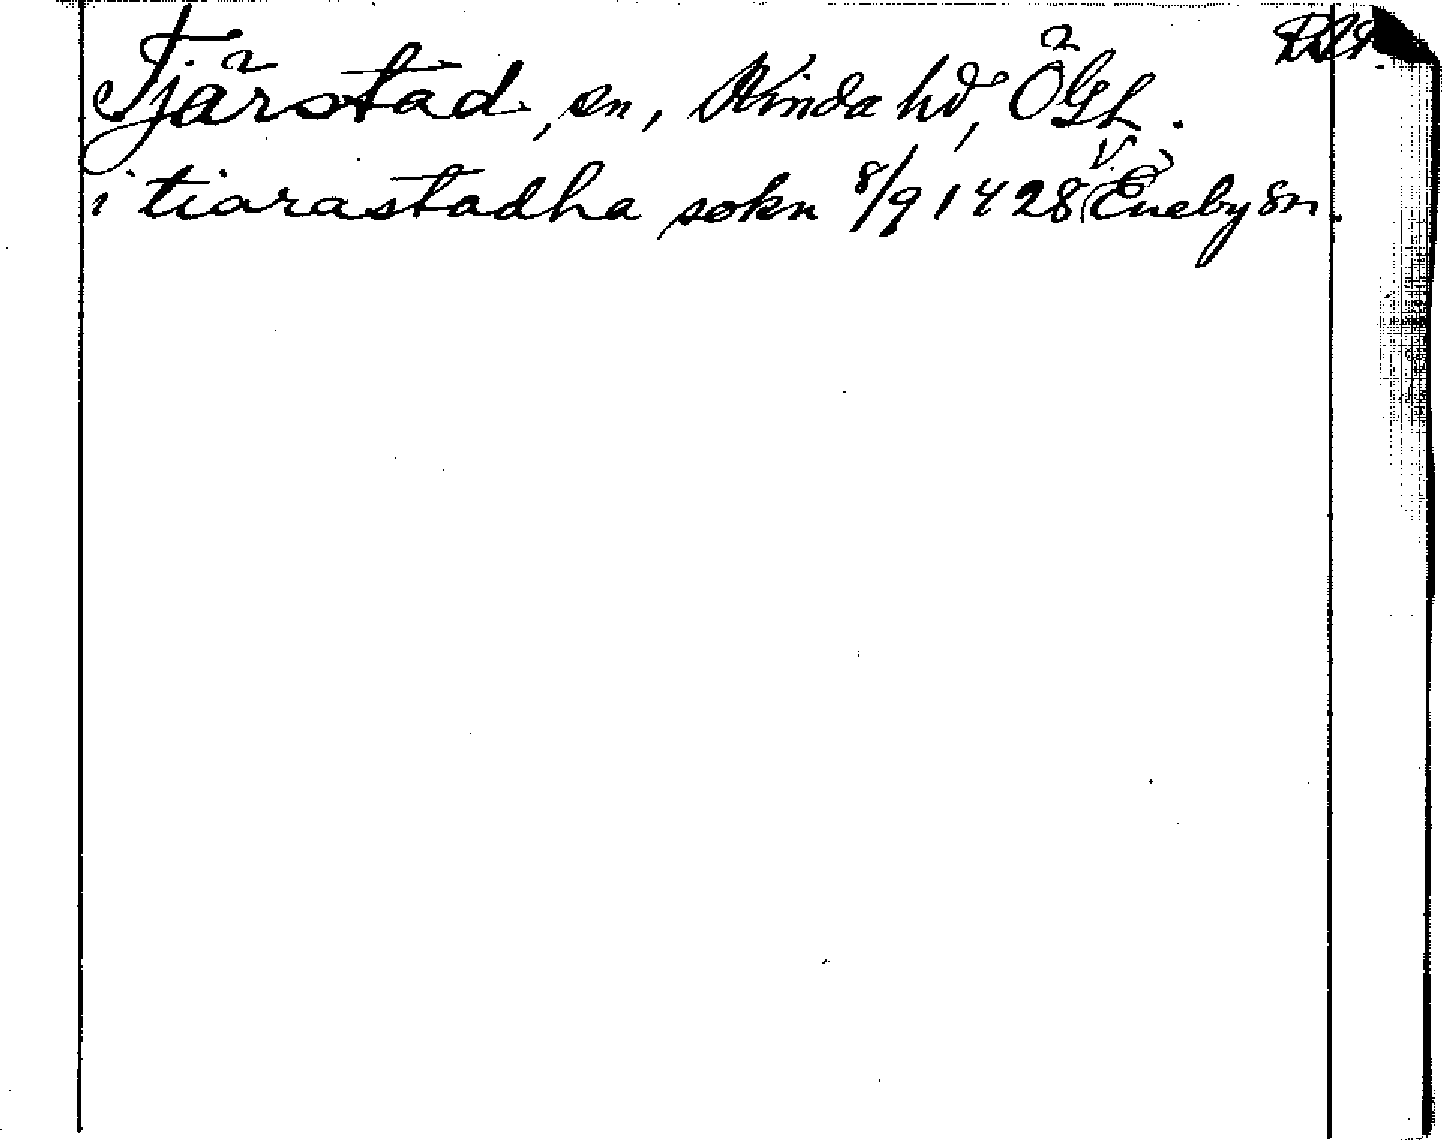 Tjärstad, sn, Kinda hd, ÖgL.
i tiarastadha sokn 8/9 1428 (V. Eneby sn.